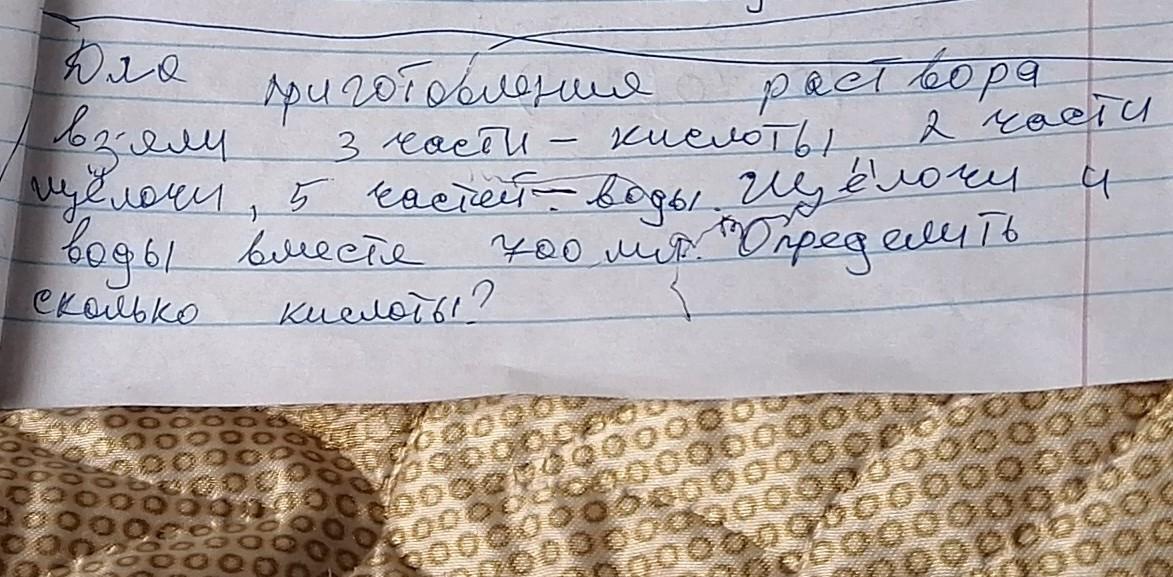 Для приготовления раствора
взяли 3 части - кислоты 2 части
щёлочи, 5 частей - воды. Щёлочи и
воды вместе 700 мл. Определить
сколько кислоты?